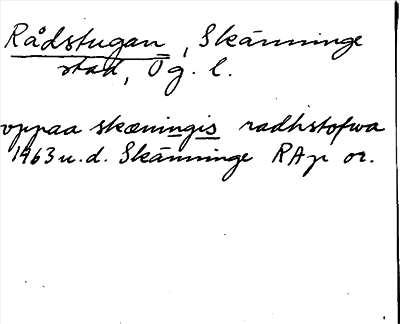 Rådstugan, Skänninge
stad, Ög. l.
oppaa skæningis radhstofwa
1463 u.d. Skänninge RAp or.